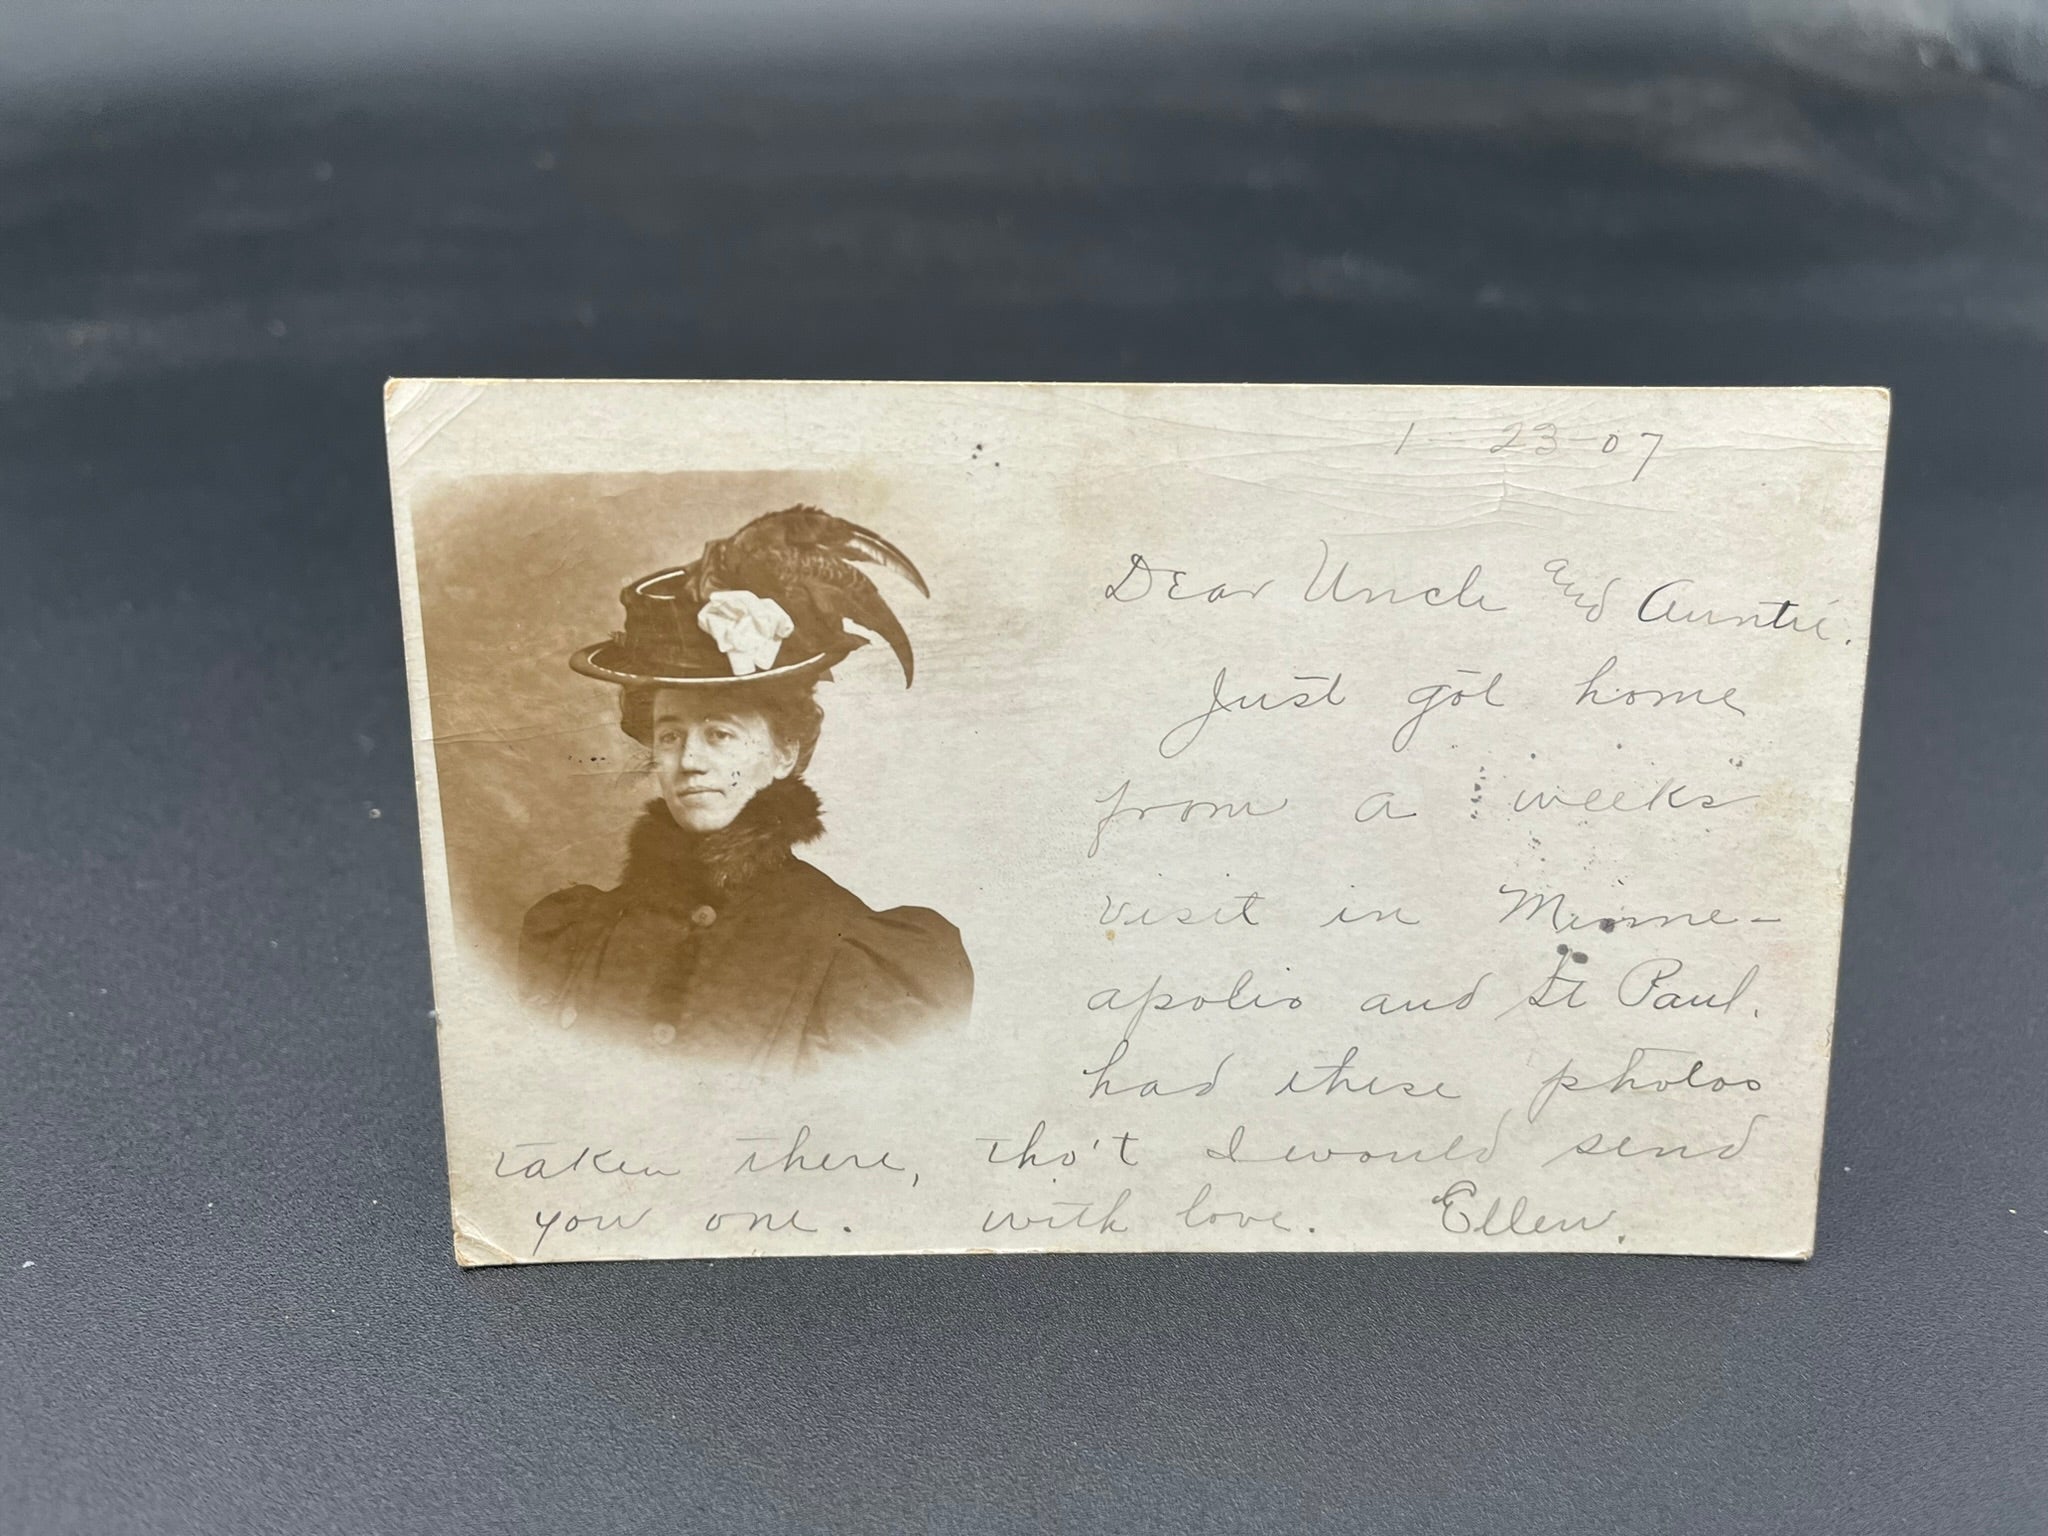 1-23-07
Dear Uncle and Auntie.
Just got home
from a weeks
visit in Minne-
apolis and St Paul.
had these photos
taken there, tho't I would send
you one. with love. Ellen.